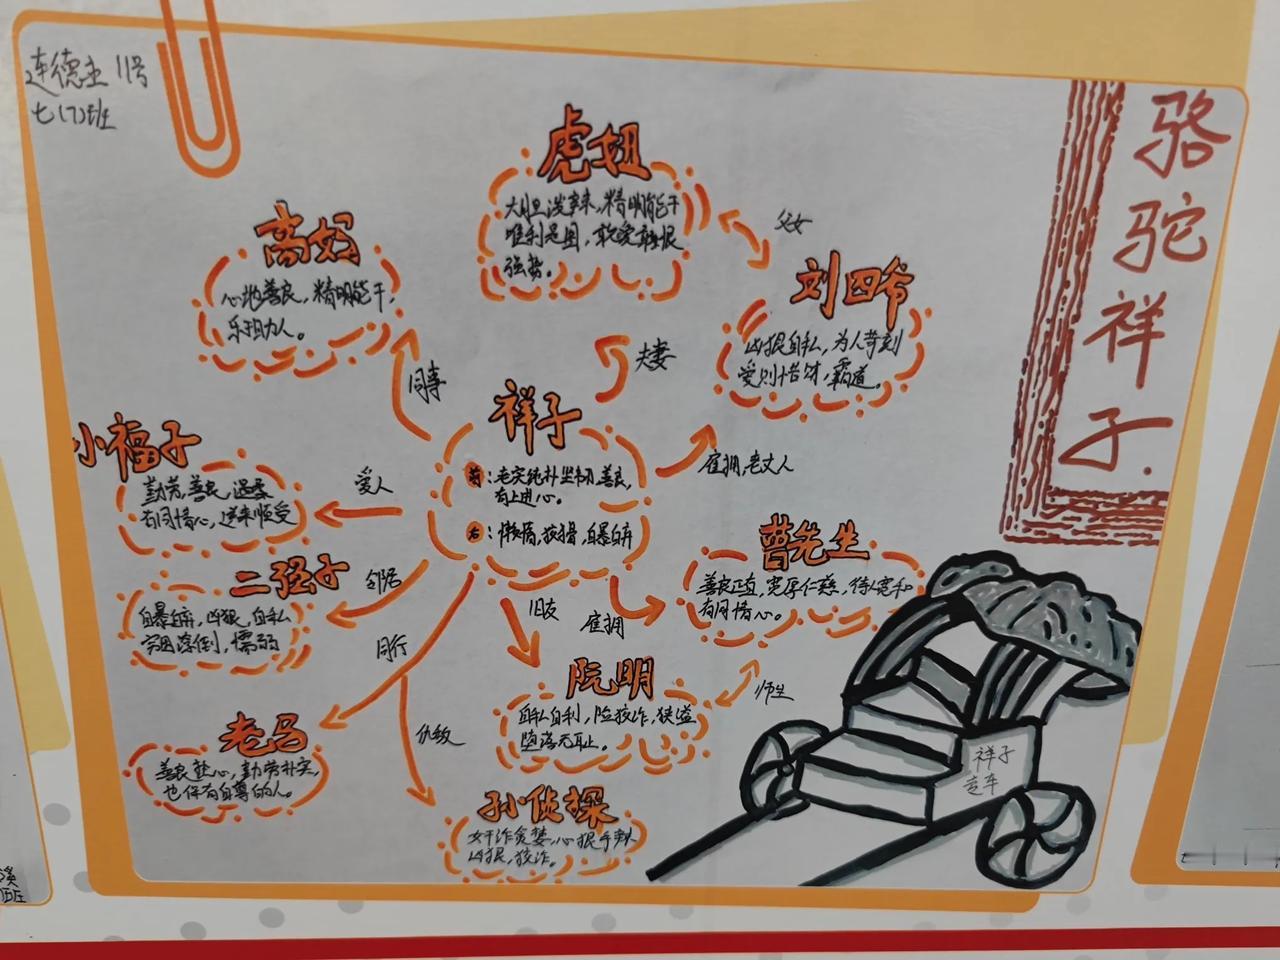 连德圭 11号
七(7)班
骆驼祥子.
虎妞
大胆泼辣,精明能干
唯利是图,敢爱敢恨
强势。
父女
刘四爷
凶狠自私,为人苛刻
爱财惜财,霸道。
高妈
心地善良,精明能干,
乐于助人。
同事
夫妻
祥子
前:老实纯朴坐韧,善良,
有上进心。
后:懒惰,狡猾,自暴自弃
雇拥,老丈人
小福子
勤劳,善良,温柔
有同情心,逆来顺受
爱人
二强子
自暴自弃,凶狠,自私
穷困潦倒,懦弱
邻居
曹先生
善良正直,宽厚仁慈,待人宽和
有同情心。
雇拥
旧友
阮明
自私自利,阴险狡诈,狭隘
堕落无耻。
师生
同行
老马
善良热心,勤劳朴实,
也保有自尊的人。
仇敌
孙侦探
奸诈贪婪,心狠手辣
凶狠,狡诈。
祥子
走车